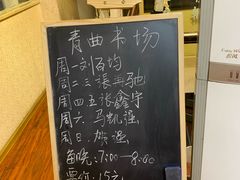 青曲书场
周一 刘百均
周二三 张再驰
周四五 张鑫宇
周六 马凯滋
周日 贺滋
每晚:7:00—8:00
票价:15元